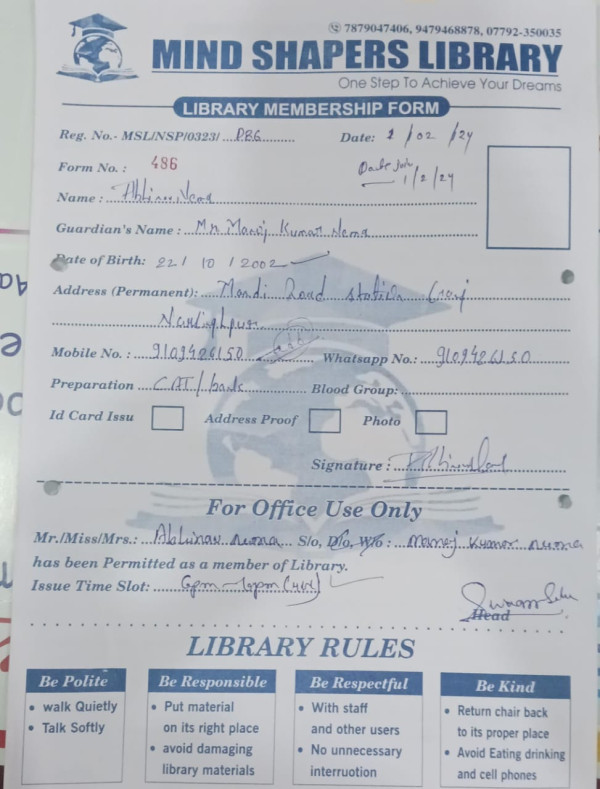 7879047406, 9479468878, 07792-350035
MIND SHAPERS LIBRARY
One Step To Achieve Your Dreams
LIBRARY MEMBERSHIP FORM
Reg. No.- MSL/NSP/0323/ Date: 1/02/24
Form No. : 486 1/2/24
Name : Abhinav Nema
Guardian's Name : Mr. Manoj Kumar Nema
Date of Birth: 22/10/2002
Address (Permanent): Mandi Road Station Ganj
Narsinghpur
Mobile No. : Whatsapp No.:
Preparation CAT/bank Blood Group:
Id Card Issu Address Proof Photo
Signature :
For Office Use Only
Mr./Miss/Mrs.: Abhinav Nema S/o, D/o, W/o : Manoj Kumar Nema
has been Permitted as a member of Library.
Issue Time Slot:
Head
LIBRARY RULES
Be Polite
• walk Quietly
• Talk Softly
Be Responsible
• Put material
on its right place
• avoid damaging
library materials
Be Respectful
• With staff
and other users
• No unnecessary
interruotion
Be Kind
• Return chair back
to its proper place
• Avoid Eating drinking
and cell phones